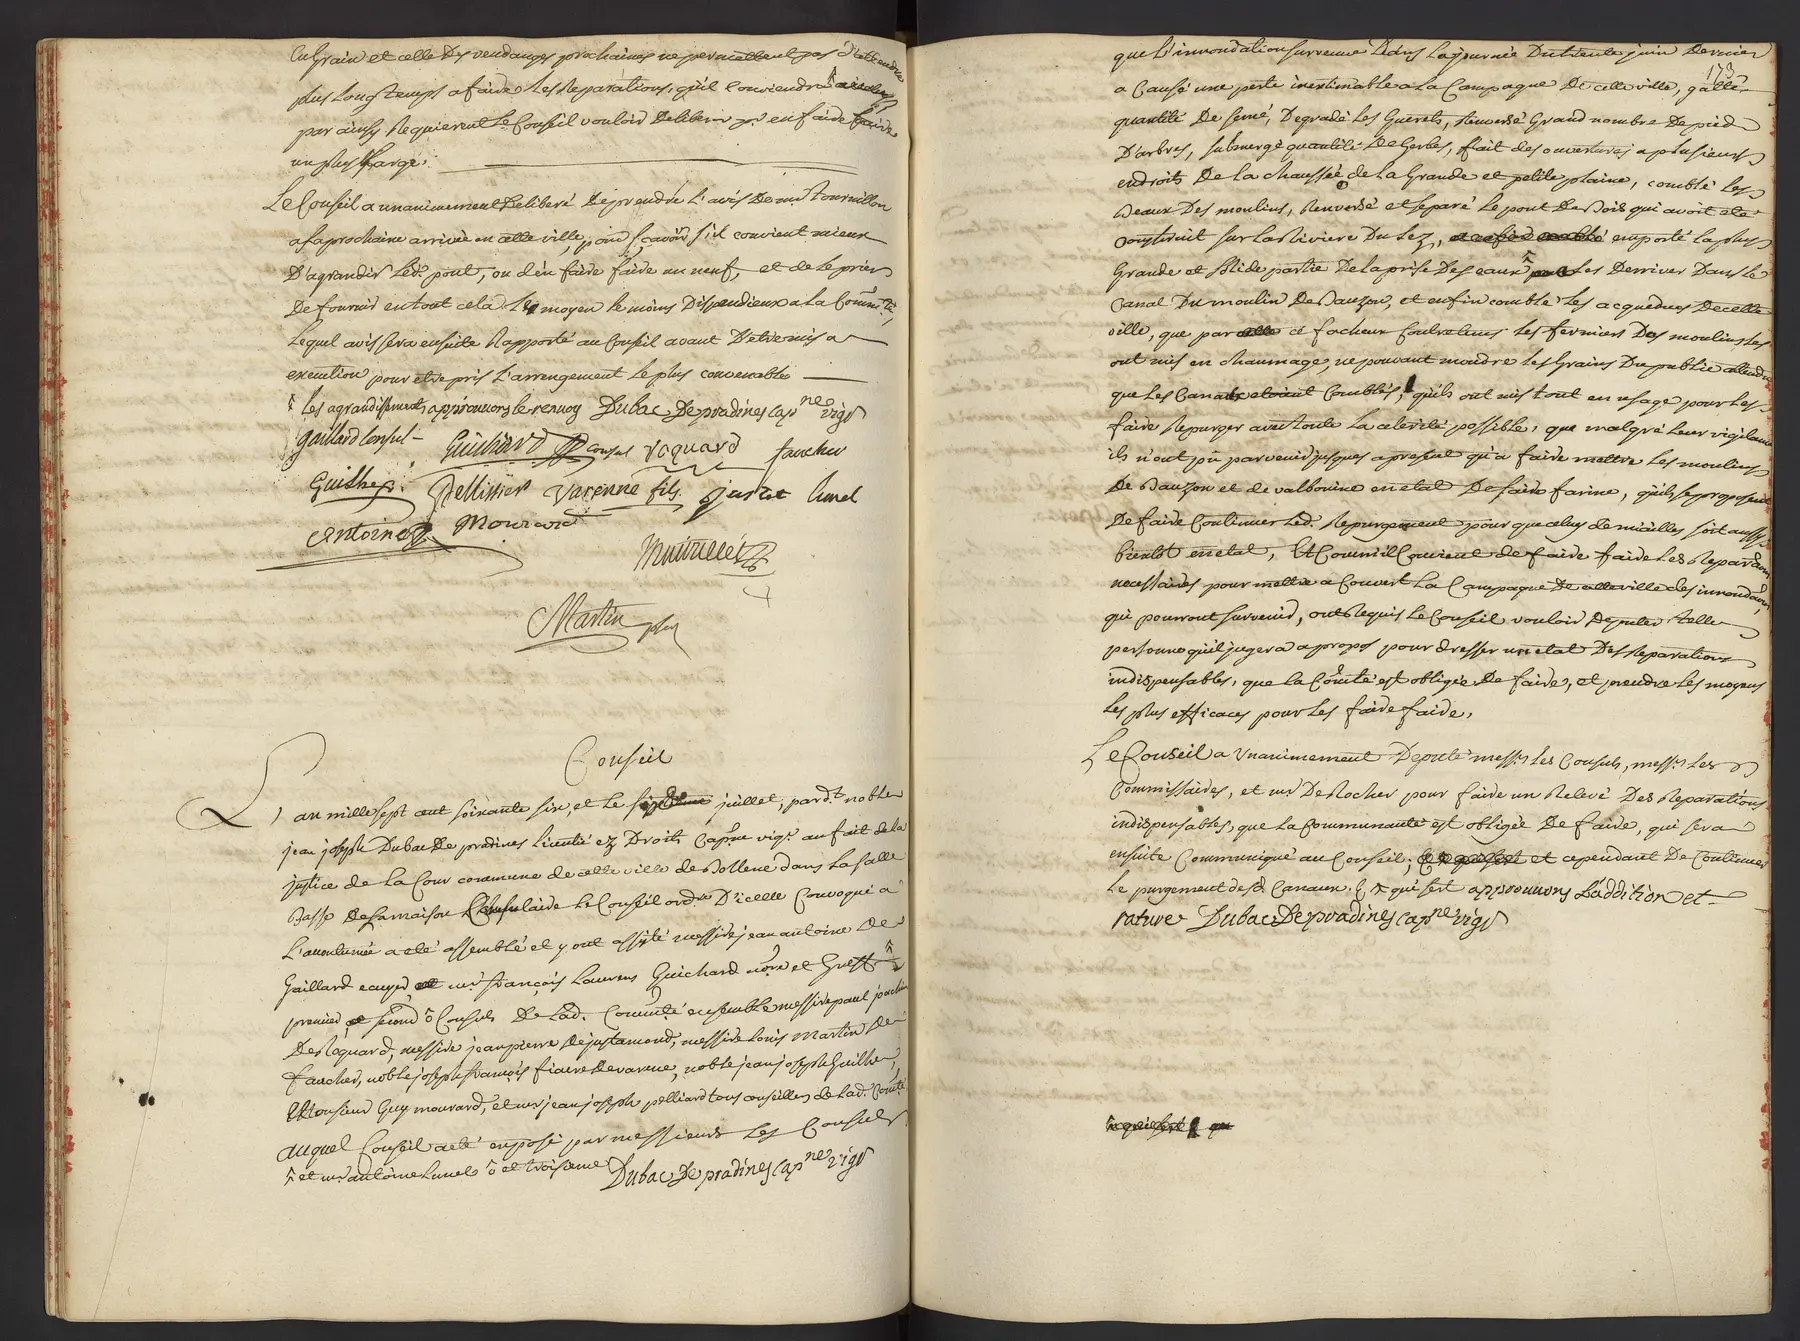 du grain et celle des vendanges prochaines ne permettent pas d'attendre
plus longtemps a faire les reparations, qu'il conviendra
par ainsy requierent le Conseil vouloir deliberer d'en faire faire
un plus large.
Le Conseil a unanimement deliberé de prendre l'avis de mr. tourvillon
a sa prochaine arrivée en cette ville, pour sçavoir s'il convient mieux
d'agrandir led. pont, ou d'en faire faire un neuf, et de le prier
de fournir en tout cela le moyen le moins dispendieux a la Comm.té,
lequel avis sera ensuite rapporté au Conseil avant d'etre mis a
execution pour etre pris l'arrengement le plus convenable
^ les agrandissements approuvons le renvoy Dubac De pradines cap.ne vigr
gaillard Consul
Guichard Consul roquard faucher
Guilhe Pellissier Varenne fils justat Lunel
antoine Mourard
Martin
Conseil
L'an mille sept cent soixante six, et le juillet, pard.t noble
jean joseph Dubac De pradines licentié ez Droits Cap.ne vigr. au fait de la
justice de la Cour commune de cette ville de Bollene dans la salle
Basse de la maison Consulaire le Conseil ordre d'icelle Convoqué a
l'accoutumée a été assemblé et y ont assisté messire jean antoine de
Gaillard ecuyer, mr. françois Laurens Guichard nore et Greff. ^
premier second o Consuls de lad. Comm.té ensemble messire paul joachim
De Roquard, messire jean pierre de justamond, messire louis martin de
faucher, noble joseph françois fiacre de varenne, noble jean joseph Guilhe,
Monsieur Guy mourard, et mr. jean joseph pelliard tous conseillers de lad. Com.té
auquel Conseil a eté exposé par messieurs les Consuls
^ et mr. antoine Lunel o et troisieme Dubac De pradines cap.ne vigr
173
que l'innondation survenue dans la journée du trente juin dernier
a causé une perte inestimable a la Campagne de cette ville, gatté
quantité de semé, degradé les Guerets, renversé Grand nombre de pied
d'arbres, submergé quantité de Gerbes, fait des ouvertures a plusieurs
endroits de la chaussée de la Grande et petite plaine, comblé les
Beaux des moulins, renversé et separé le pont de Bois qui avoit eté
construit sur la Riviere du Lez, emporté la plus
Grande et solide partie de la prise des eaux ^ les deriver dans le
Canal du moulin de Bauzon, et enfin comblé les acqueducs de cette
ville, que par ce facheux Contretems les fermiers des moulins les
ont mis en chaumage, ne pouvant moudre les Grains du public attendu
que les Canaux etoient Comblés, qu'ils ont mis tout en usage pour les
faire repurger avec toute la celerité possible, que malgré leur vigilance
ils n'ont pû parvenir jusques a present qu'a faire mettre les moulins
de Bauzon et de valbonne en etat de faire farine, qu'ils se proposent
de faire Continuer led. repurgement pour que celuy de micilles soit aussy
bientôt en etat, et Comm'il Convient de faire faire les reparaons
necessaires pour mettre a Couvert la Campagne de cette ville des innondaons
qui pourront survenir, ont requis le Conseil vouloir deputer telle
personne qu'il jugera a propos pour dresser un etat des reparations
indispensables, que la Com.té est obligée de faire, et prendre les moyens
les plus efficaces pour les faire faire,
Le Conseil a unanimement deputé mess.rs les Consuls, mess.rs les
Commissaires, et mr. De Rocher pour faire un Relevé des reparations
indispensables, que la Communauté est obligée de faire, qui sera
ensuite Communiqué au Conseil; et cependant de Continuer
le purgement desd. Canaux. ^ qui sert approuvons l'addition et
rature Dubac De pradines cap.ne vigr